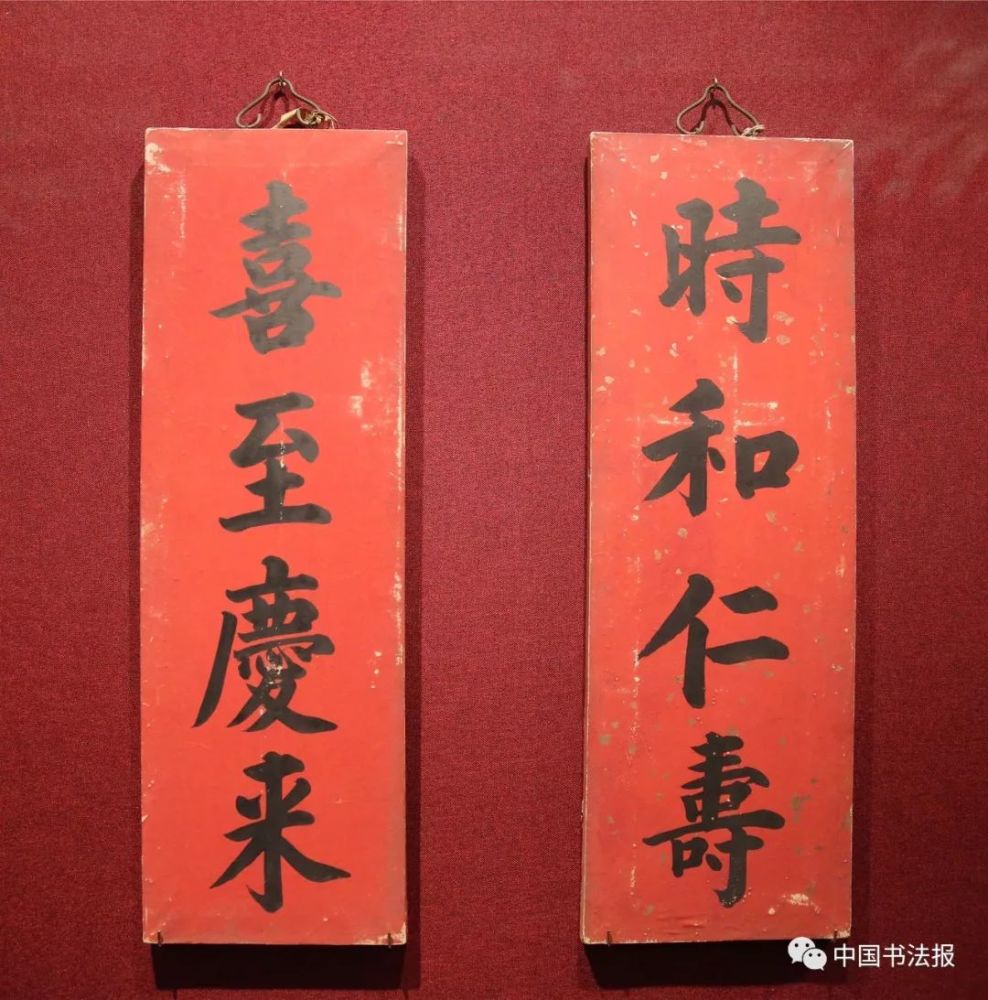 時和仁壽
喜至慶来
中国书法报